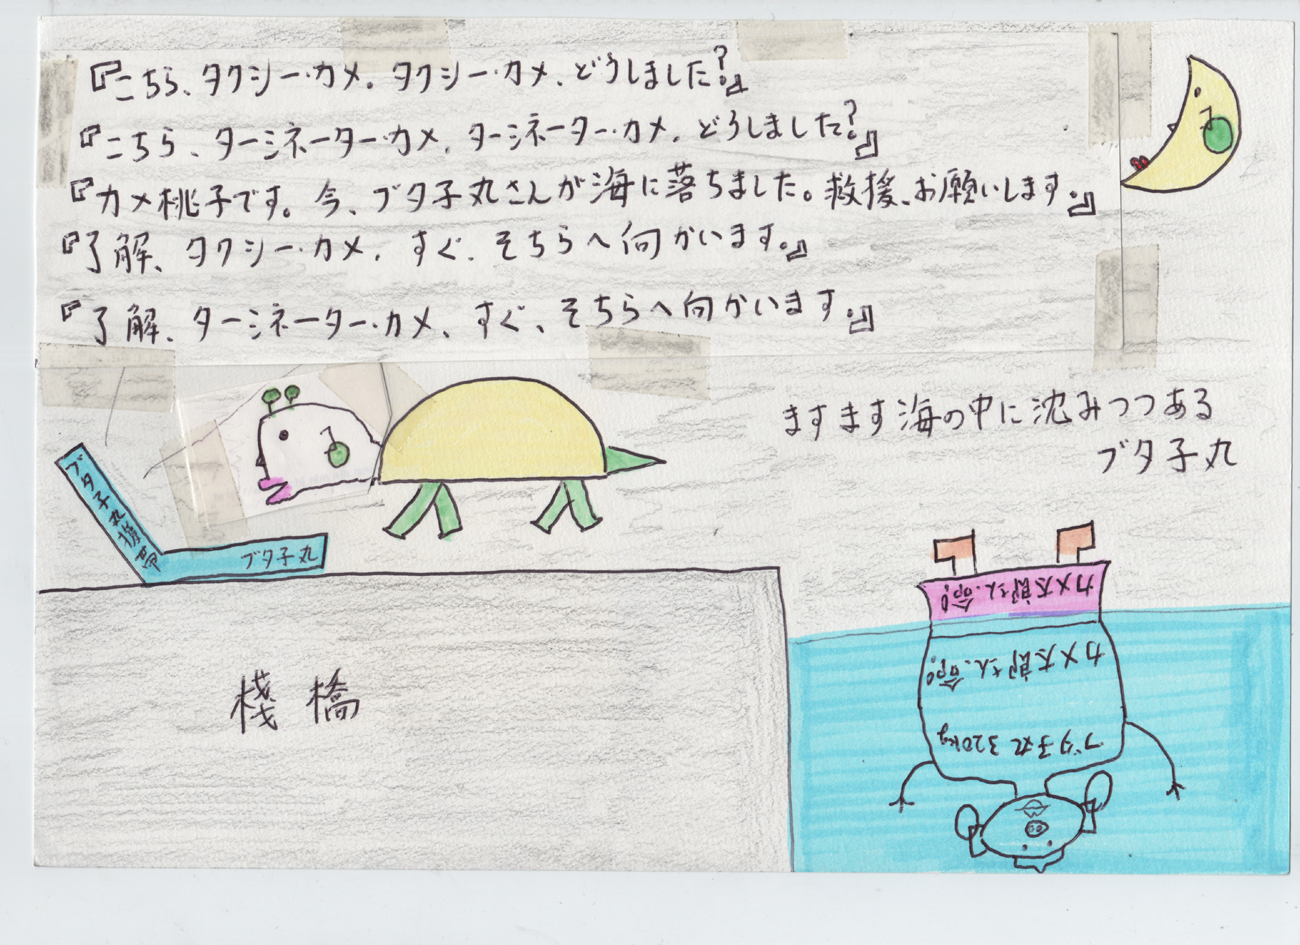 『こちら、タクシー・カメ。タクシー・カメ、どうしました?』
『こちら、ターシネーター・カメ。ターシネーター・カメ、どうしました?』
『カメ桃子です。今、ブタ子丸さんが海に落ちました。救援、お願いします。』
『了解、タクシー・カメ、すぐ、そちらへ向かいます。』
『了解、ターシネーター・カメ、すぐ、そちらへ向かいます。』
ますます海の中に沈みつつある
ブタ子丸
ブタ子丸携帯
ブタ子丸
棧橋
カメ太郎さん、命!
カメ太郎さん、命!
ブタ子丸320kg